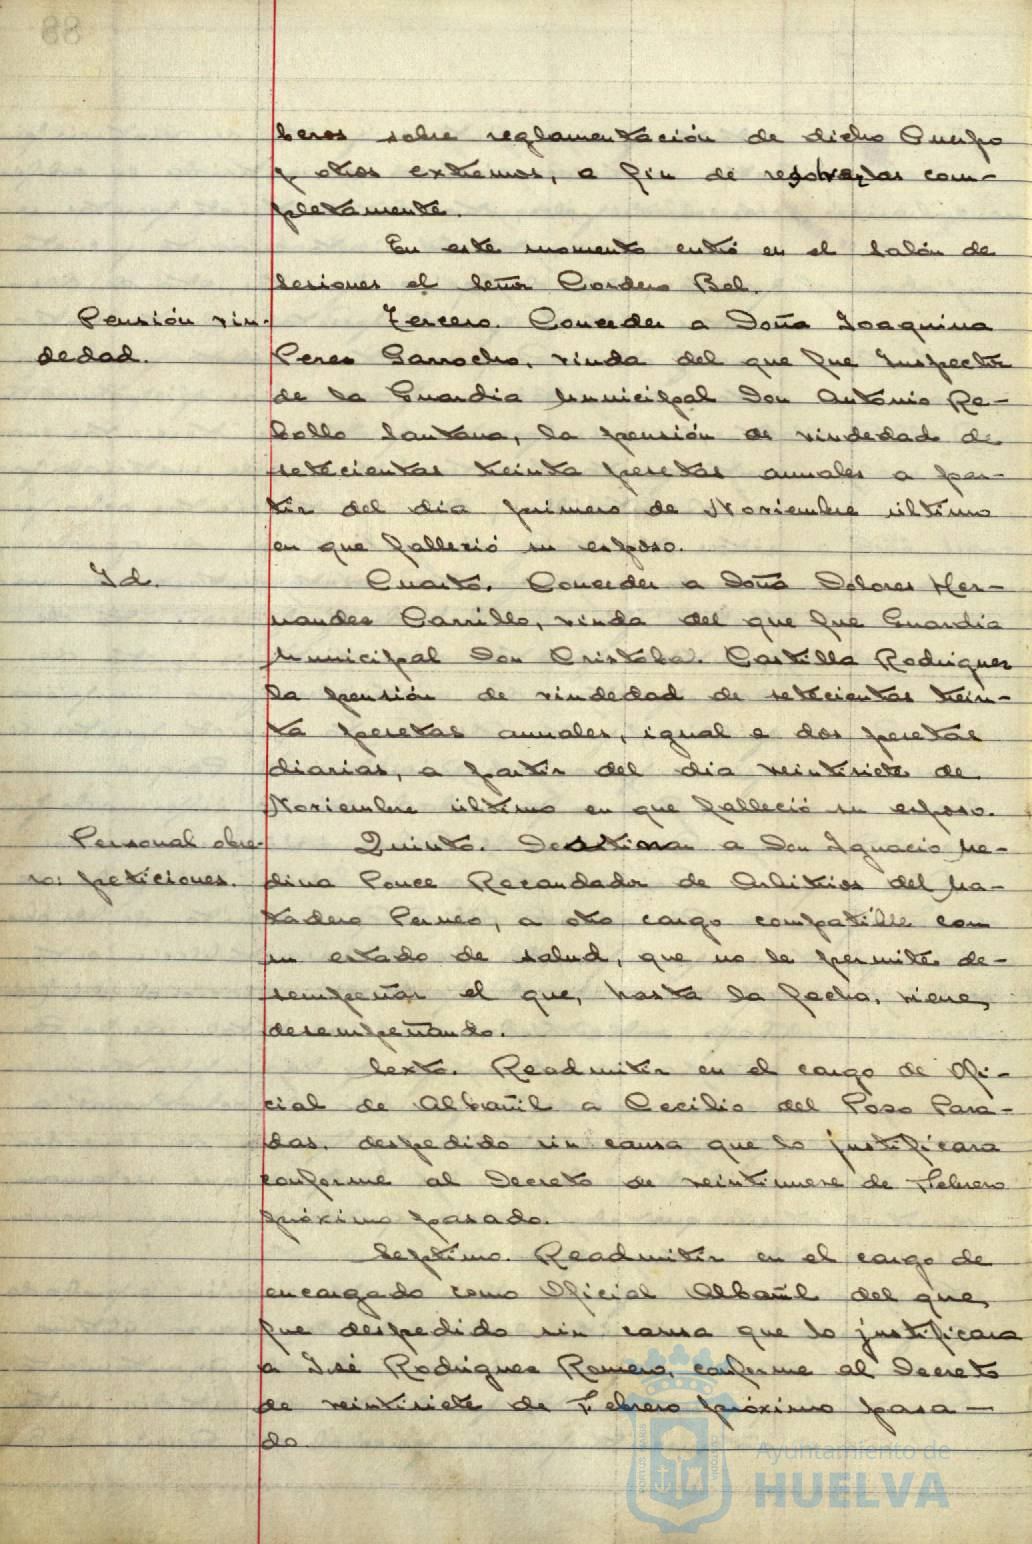 88
beros sobre reglamentación de dicho Cuerpo
y otros extremos, a fin de resolverlas com-
pletamente.
En este momento entró en el Salón de
Sesiones el Señor Cordero Bel.
Pensión viu-
dedad.
Tercero. Conceder a Doña Joaquina
Perez Garrocho, viuda del que fue Inspector
de la Guardia Municipal Don Antonio Re-
bollo Santana, la pensión de viudedad de
setecientas treinta pesetas anuales a par-
tir del día primero de Noviembre último
en que falleció su esposo.
Id.
Cuarto. Conceder a Doña Dolores Her-
nandez Carrillo, viuda del que fue Guardia
Municipal Don Cristobal Castilla Rodriguez
la pensión de viudedad de setecientas trein-
ta pesetas anuales, igual a dos pesetas
diarias, a partir del día veintisiete de
Noviembre último en que falleció su esposo.
Personal obre-
ro: peticiones.
Quinto. Destinar a Don Ignacio Me-
dina Ponce Recaudador de Arbitrios del Ma-
tadero Perneo, a otro cargo compatible con
su estado de salud, que no le permite de-
sempeñar el que, hasta la fecha, viene
desempeñando.
Sexto. Readmitir en el cargo de Ofi-
cial de Albañil a Cecilio del Pozo Para-
das, despedido sin causa que lo justificara
conforme al Decreto de veintinueve de Febrero
próximo pasado.
Septimo. Readmitir en el cargo de
encargado como Oficial Albañil del que
fue despedido sin causa que lo justificara
a José Rodriguez Romero, conforme al Decreto
de veintisiete de Febrero próximo pasa-
do.
Ayuntamiento de
HUELVA